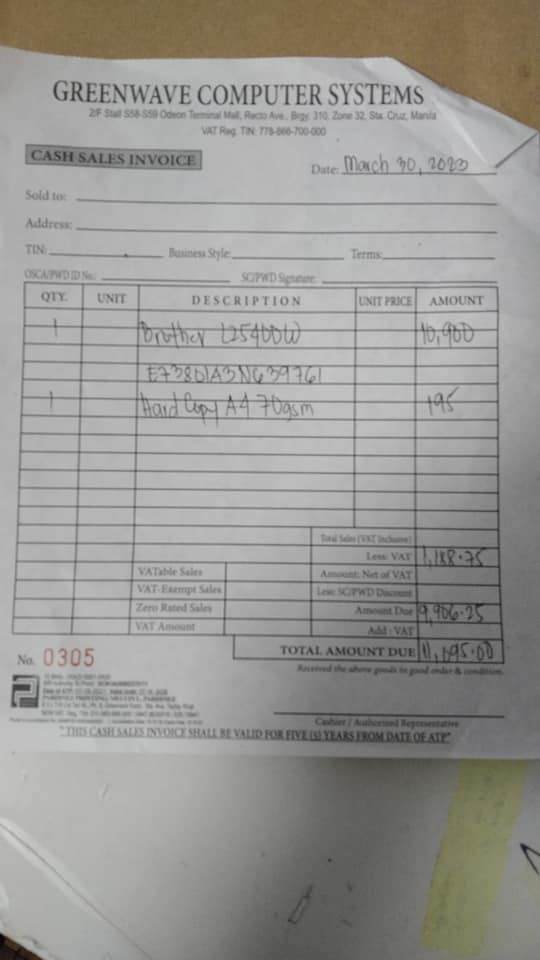 GREENWAVE COMPUTER SYSTEMS
2/F Stall S58-S59 Odeon Terminal Mall, Recto Ave., Brgy. 310, Zone 32, Sta. Cruz, Manila
VAT Reg. TIN: 778-866-700-000
CASH SALES INVOICE
Date: March 30, 2023
Sold to:
Address:
TIN: Business Style: Terms:
OSCA/PWD ID No.: SC/PWD Signature:
QTY. UNIT DESCRIPTION UNIT PRICE AMOUNT
1 Brother L2540DW 10,900
E73801A3N639761
1 Hard Copy A4 70gsm 195
Total Sales (VAT Inclusive)
Less: VAT 1,188.75
VATable Sales Amount: Net of VAT
VAT-Exempt Sales Less: SC/PWD Discount
Zero Rated Sales Amount Due 9,906.25
VAT Amount Add: VAT
TOTAL AMOUNT DUE 11,095.00
No. 0305
Received the above goods in good order & condition.
Cashier / Authorized Representative
"THIS CASH SALES INVOICE SHALL BE VALID FOR FIVE (5) YEARS FROM DATE OF ATP"